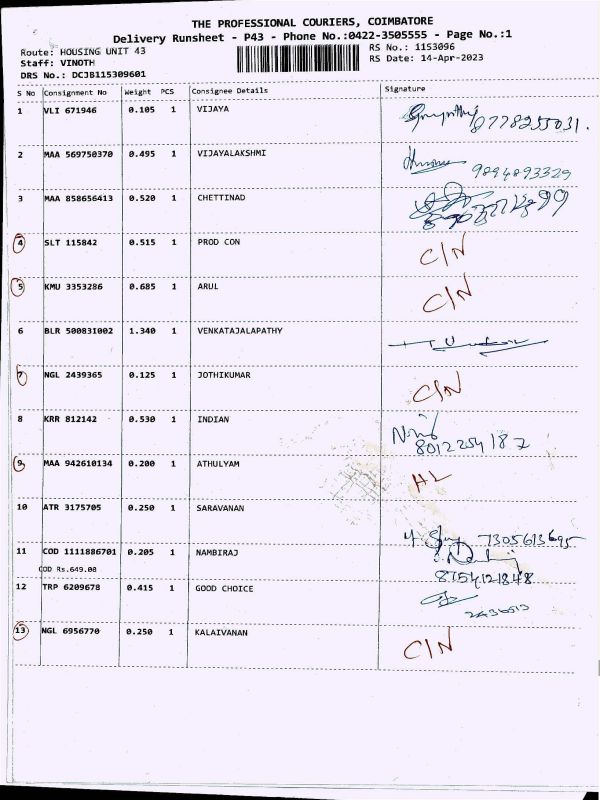 THE PROFESSIONAL COURIERS, COIMBATORE
Delivery Runsheet - P43 - Phone No.:0422-3505555 - Page No.:1
Route: HOUSING UNIT 43 RS No.: 1153096
Staff: VINOTH RS Date: 14-Apr-2023
DRS No.: DCJB115309601
S No Consignment No Weight PCS Consignee Details Signature
1 VLI 671946 0.105 1 VIJAYA 8778255031.
2 MAA 569750370 0.495 1 VIJAYALAKSHMI 9894893329
3 MAA 858656413 0.520 1 CHETTINAD
4 SLT 115842 0.515 1 PROD CON C/N
5 KMU 3353286 0.685 1 ARUL C/N
6 BLR 500831002 1.340 1 VENKATAJALAPATHY
7 NGL 2439365 0.125 1 JOTHIKUMAR C/N
8 KRR 812142 0.530 1 INDIAN 8012254187
9 MAA 942610134 0.200 1 ATHULYAM HL
10 ATR 3175705 0.250 1 SARAVANAN 7305613695
11 COD 1111886701 0.205 1 NAMBIRAJ
COD Rs.649.00 8754121848
12 TRP 6209678 0.415 1 GOOD CHOICE
13 NGL 6956770 0.250 1 KALAIVANAN C/N